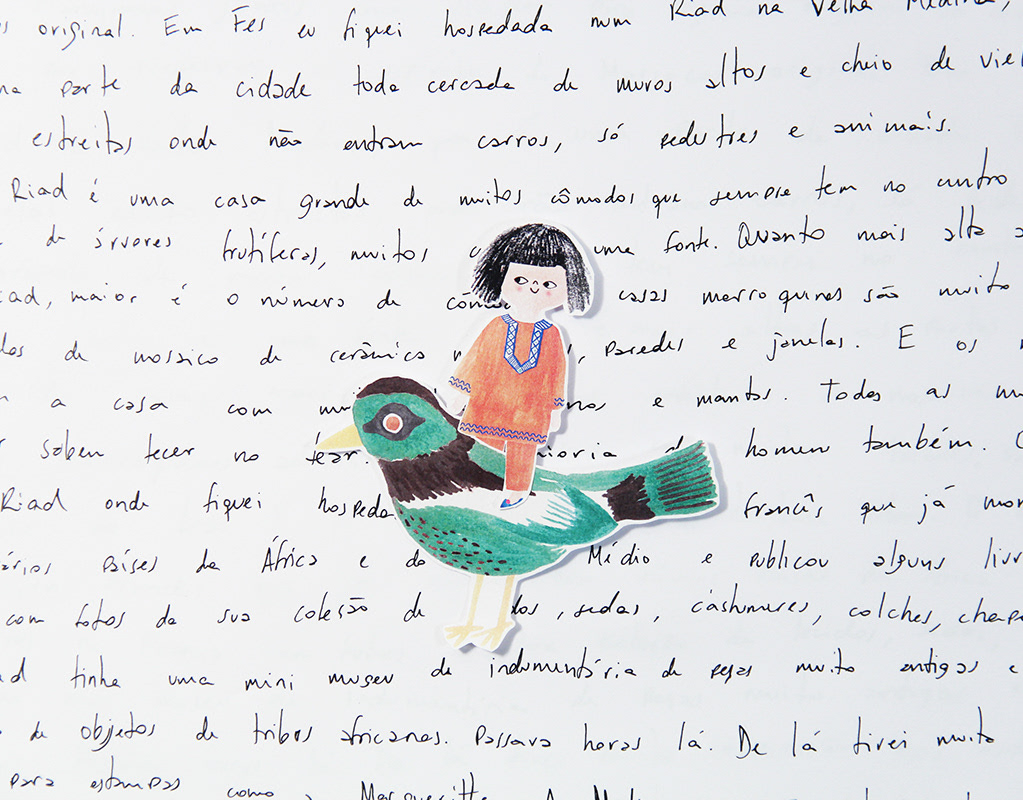 s original. Em Fes eu fiquei hospedada num Riad na Velha Medina,
ma parte da cidade toda cercada de muros altos e cheio de viel
estreitas onde não entram carros, só pedestres e animais.
Riad é uma casa grande de muitos cômodos que sempre tem no centro
de árvores frutíferas, muitos uma fonte. Quanto mais alta a
iad, maior é o número de cômo casas marroquinas são muito
das de mosaico de cerâmica , paredes e janelas. E os
a casa com mui nos e mantos. Todas as mu
saben tecer no tear. maioria do homem também.
Riad onde fiquei hospeda francês que já mor
ários países da África e do Médio e publicou alguns livr
com fotos da sua coleção de dos, sedas, cashmeres, colches, chapé
ad tinha uma mini museu de indumentária de peças muito antigas e
de objetos de tribos africanas. Passava horas lá. De lá tirei muito
para estampas como a Margueritte